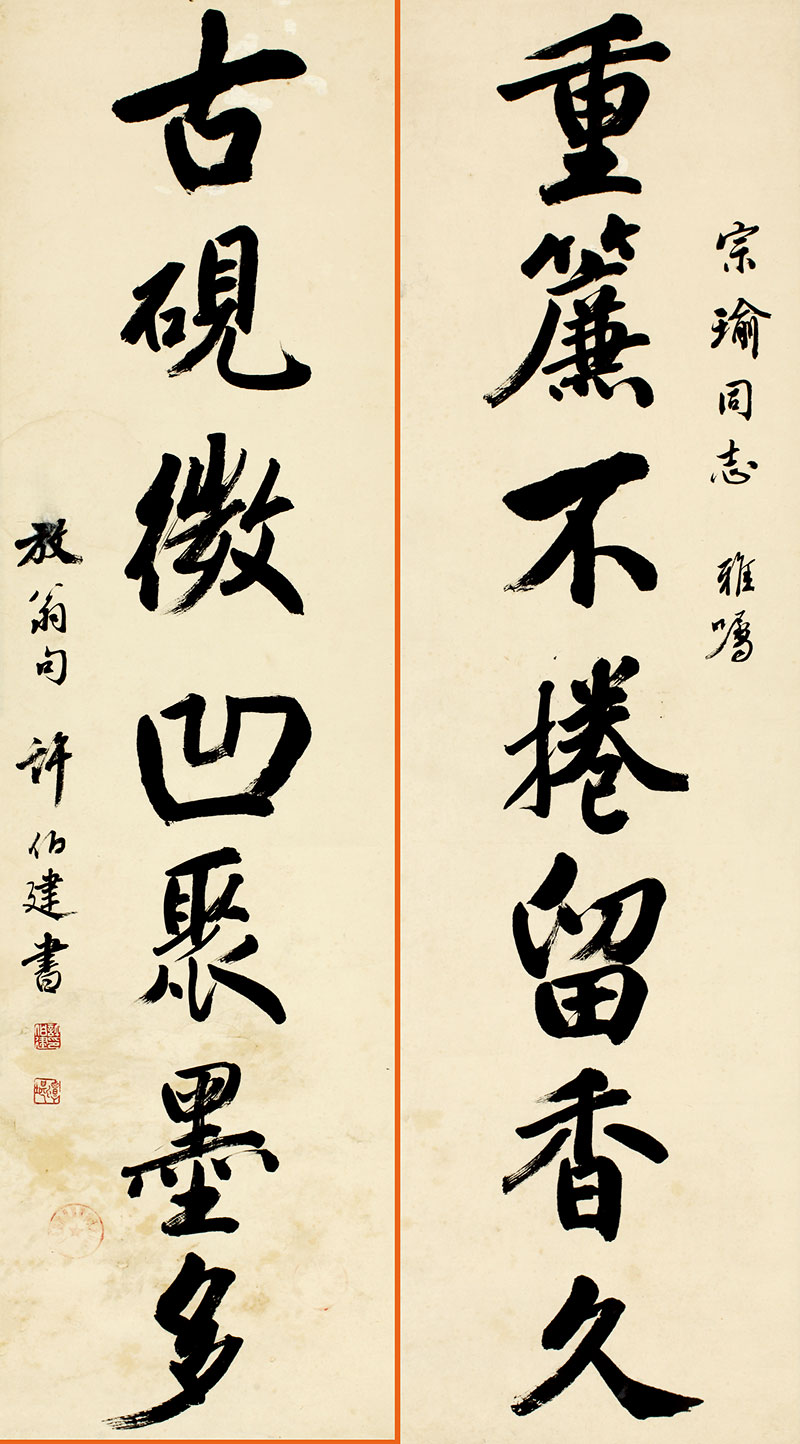 宗瑜同志 雅嘱
重簾不捲留香久
古硯微凹聚墨多
放翁句 许伯建書